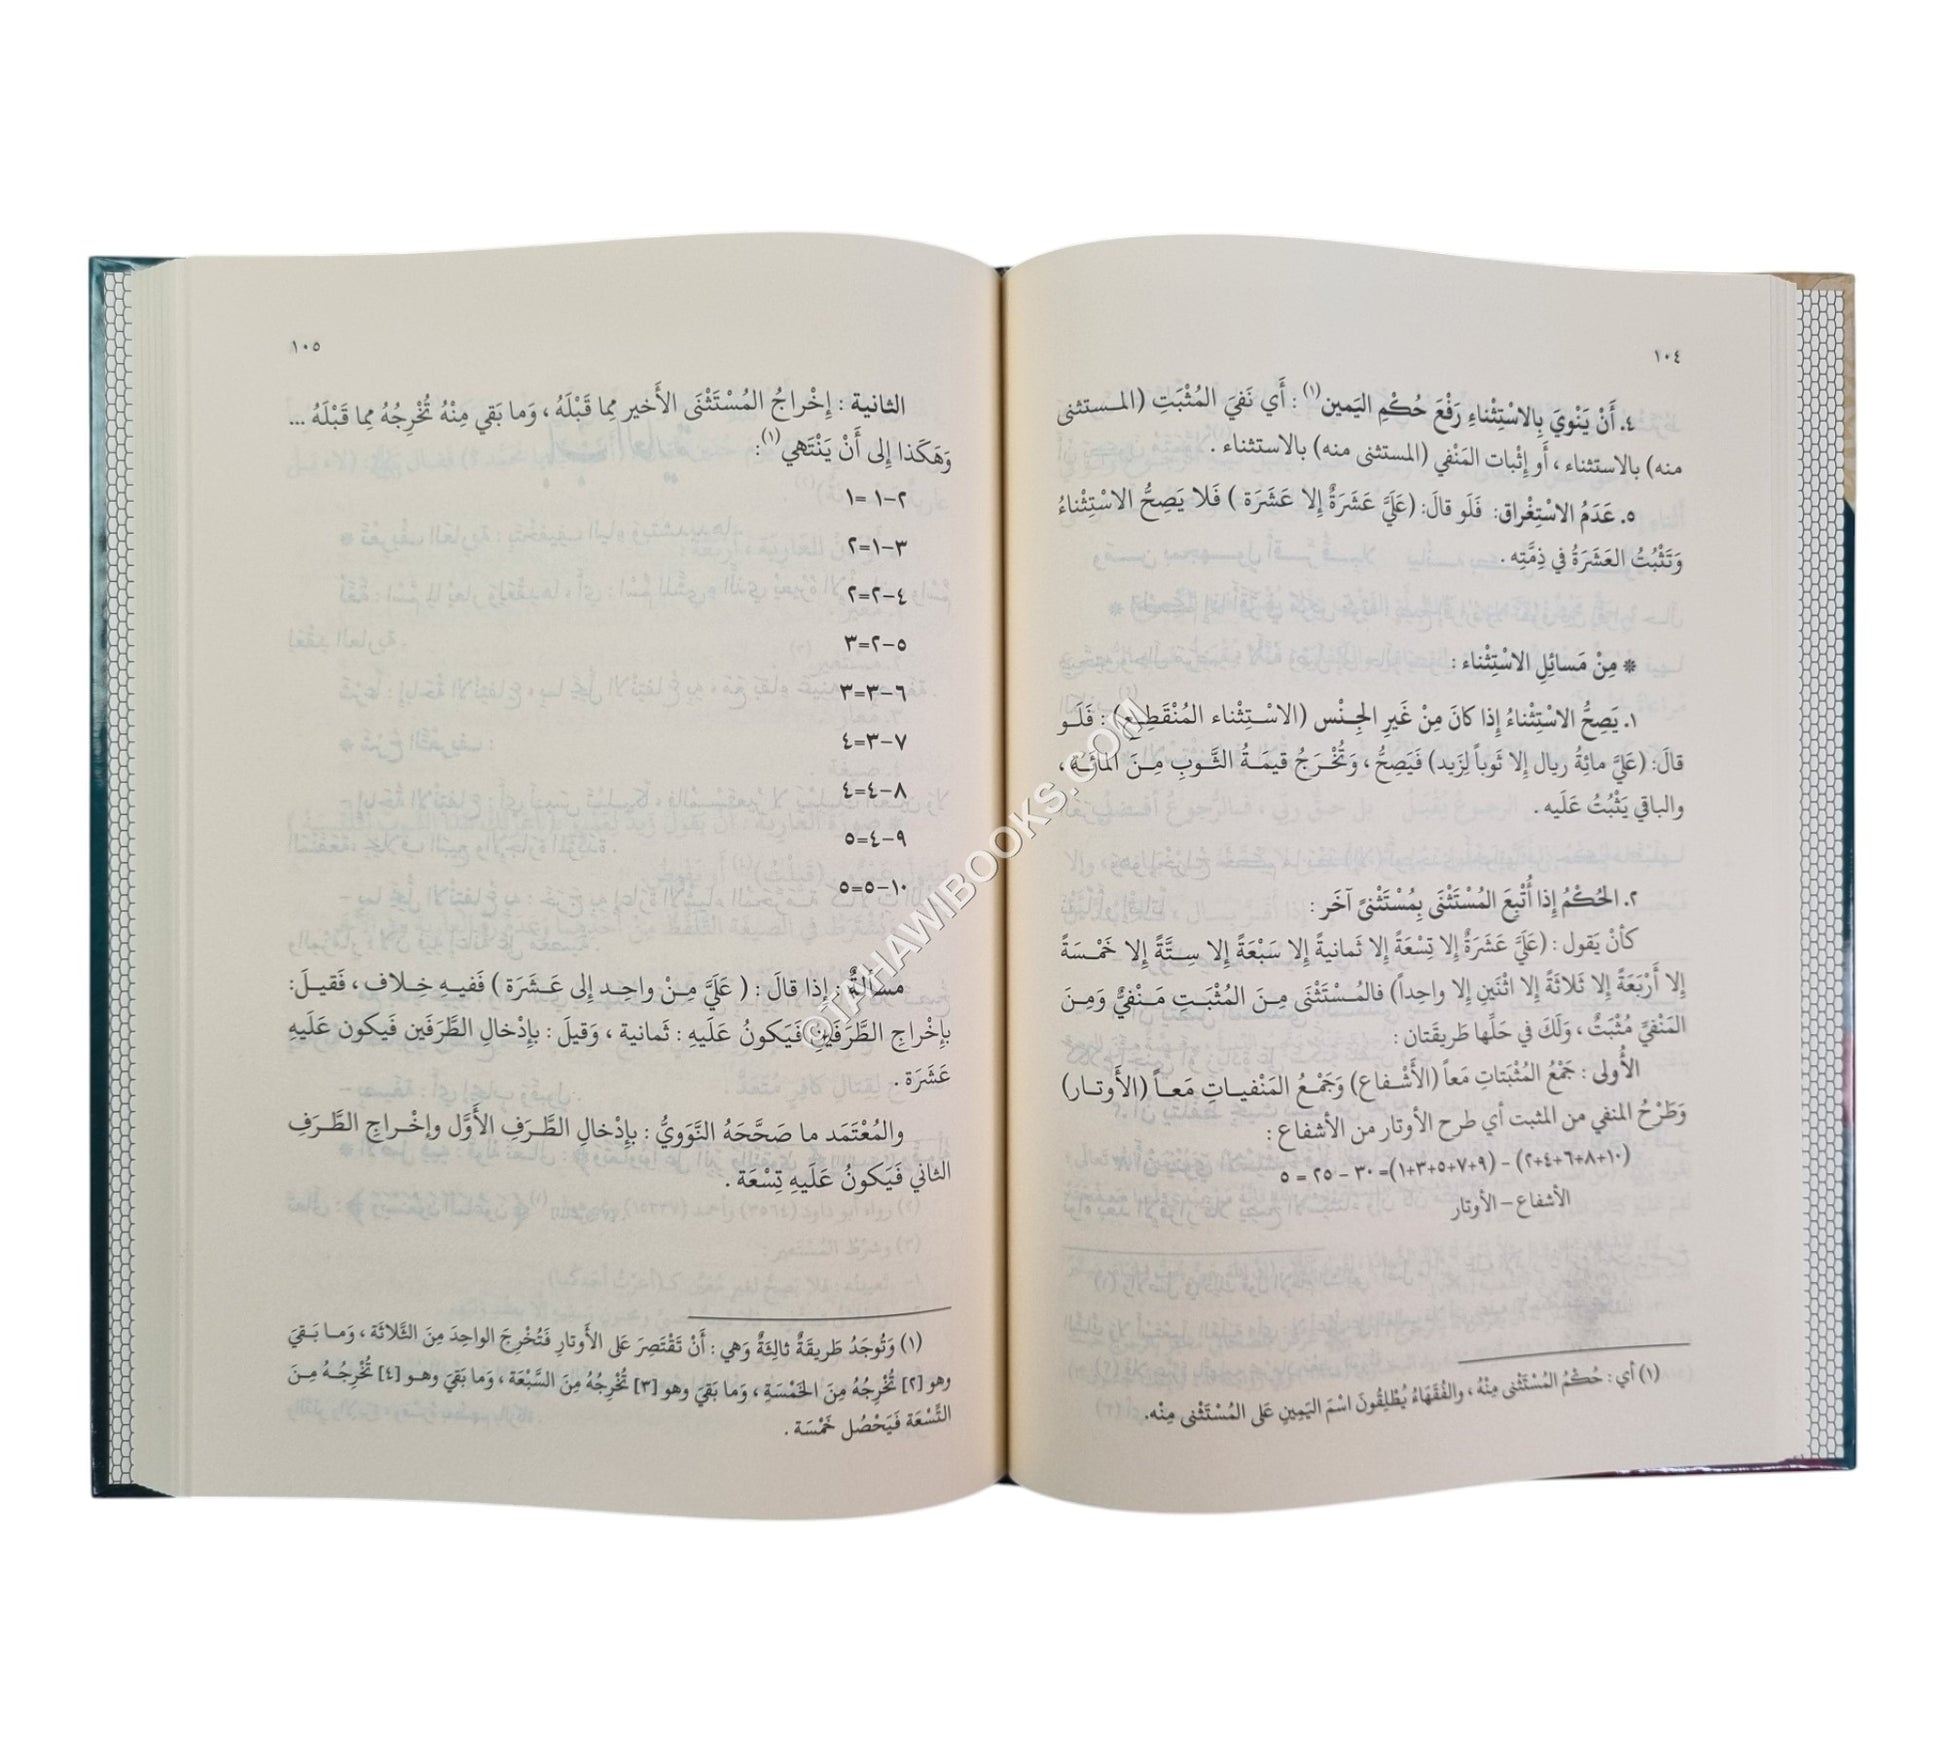 ١٠٤
٤. أَنْ يَنْوِيَ بِالاسْتِثْناءِ رَفْعَ حُكْمِ اليَمين(١) : أَي نَفيَ المُثْبَتِ (المـستثنى
منه) بالاستثناء ، أَو إِثْبات المَنْفي (المستثنى منه) بالاستثناء .
٥. عَدَمُ الاسْتِغْراق: فَلَو قالَ: (عَلَيَّ عَشَرَةٌ إِلا عَشَرَة ) فَلا يَصِحُّ الاسْتِثْناءُ
وَتَثْبُتُ العَشَرَةُ في ذِمَّتِه .
* مِنْ مَسائِلِ الاسْتِثْناء :
١. يَصِحُّ الاسْتِثْناءُ إِذا كانَ مِنْ غَيرِ الجِـنْس (الاسْـتِثْناء المُنْقَطِـع) : فَلَـو
قالَ: (عَلَيَّ مائِةُ ريال إِلا ثَوباً لِزَيد) فَيَصِحُّ ، وَتُخْرَجُ قيمَـةُ الثَّـوبِ مِـنَ المائَـة ،
والباقي يَثْبُتُ عَلَيه .
٢. الحُكْمُ إِذا أُتْبِعَ المُسْتَثْنَى بِمُسْتَثْنىً آخَر :
كأنْ يَقول : (عَلَيَّ عَشَرَةٌ إِلا تِسْعَةً إِلا ثَمانيةً إِلا سَبْعَةً إِلا سِـتَّةً إِلا خَمْـسَةً
إِلا أَرْبَعَةً إِلا ثَلاثَةً إِلا اثْنَينِ إِلا واحِداً) فالمُـسْتَثْنَى مِـنَ المُثْبَـتِ مَـنْفيٌّ وَمِـنَ
المَنْفيِّ مُثْبَتٌ ، وَلَكَ في حَلِّها طَريقَتان :
الأُولى : جَمْعُ المُثْبَتاتِ مَعاً (الأَشْـفاع) وَجَمْـعُ المَنْفيـاتِ مَعـاً (الأَوتـار)
وَطَرْحُ المنفي من المثبت أي طرح الأوتار من الأشفاع :
(١٠+٨+٦+٤+٢) – (٩+٧+٥+٣+١)= ٣٠ – ٢٥ = ٥
الأشفاع – الأوتار
(١) أي : حُكْمُ المُسْتَثْنى مِنْهُ ، والفُقَهَاءُ يُطْلِقُونَ اسْمَ اليَمِينِ عَلى المُسْتَثْنى مِنْه.
١٠٥
الثانية : إِخْراجُ المُسْتَثْنَى الأَخير مِما قَبْلَهُ ، وَما بَقي مِنْهُ تُخْرِجُهُ مِما قَبْلَهُ ...
وَهَكَذا إِلى أَنْ يَنْتَهي(١):
٢–١ =١
٣–١=٢
٤–٢=٢
٥–٢=٣
٦–٣=٣
٧–٣=٤
٨–٤=٤
٩–٤=٥
١٠–٥=٥
مَسْأَلةٌ : إِذا قالَ : ( عَلَيَّ مِـنْ واحِـد إِلى عَـشَرَة ) فَفيـهِ خِـلاف ، فَقيـلَ:
بإِخْراجِ الطَّرَفَينِ فَيَكونُ عَلَيهِ : ثَمانية ، وَقيلَ : بإِدْخالِ الطَّرَفَين فَيكون عَلَيهِ
عَشَرَة .
والمُعْتَمَد ما صَحَّحَهُ النَّوَويُّ : بإِدْخالِ الطَّـرَفِ الأَوَّل وإخْـراجِ الطَّـرَفِ
الثاني فَيَكونُ عَلَيهِ تِسْعَة .
(١) وَتُوجَدُ طَريقَةٌ ثالِثَةٌ وَهي : أَنْ تَقْتَصِرَ عَلى الأَوتارِ فَتُخْرِجَ الواحِدَ مِنَ الثَّلاثَة ، وَمـا بَـقيَ
وهو [٢] تُخْرِجُهُ مِنَ الخَمْسَةِ ، وَما بَقيَ وهو [٣] تُخْرِجُهُ مِنَ السَّبْعَة ، وَما بَقيَ وهـو [٤] تُخْرِجُـهُ مِـنَ
التِّسْعَة فَيَحْصُل خَمْسَة .
©TAHAWIBOOKS.COM